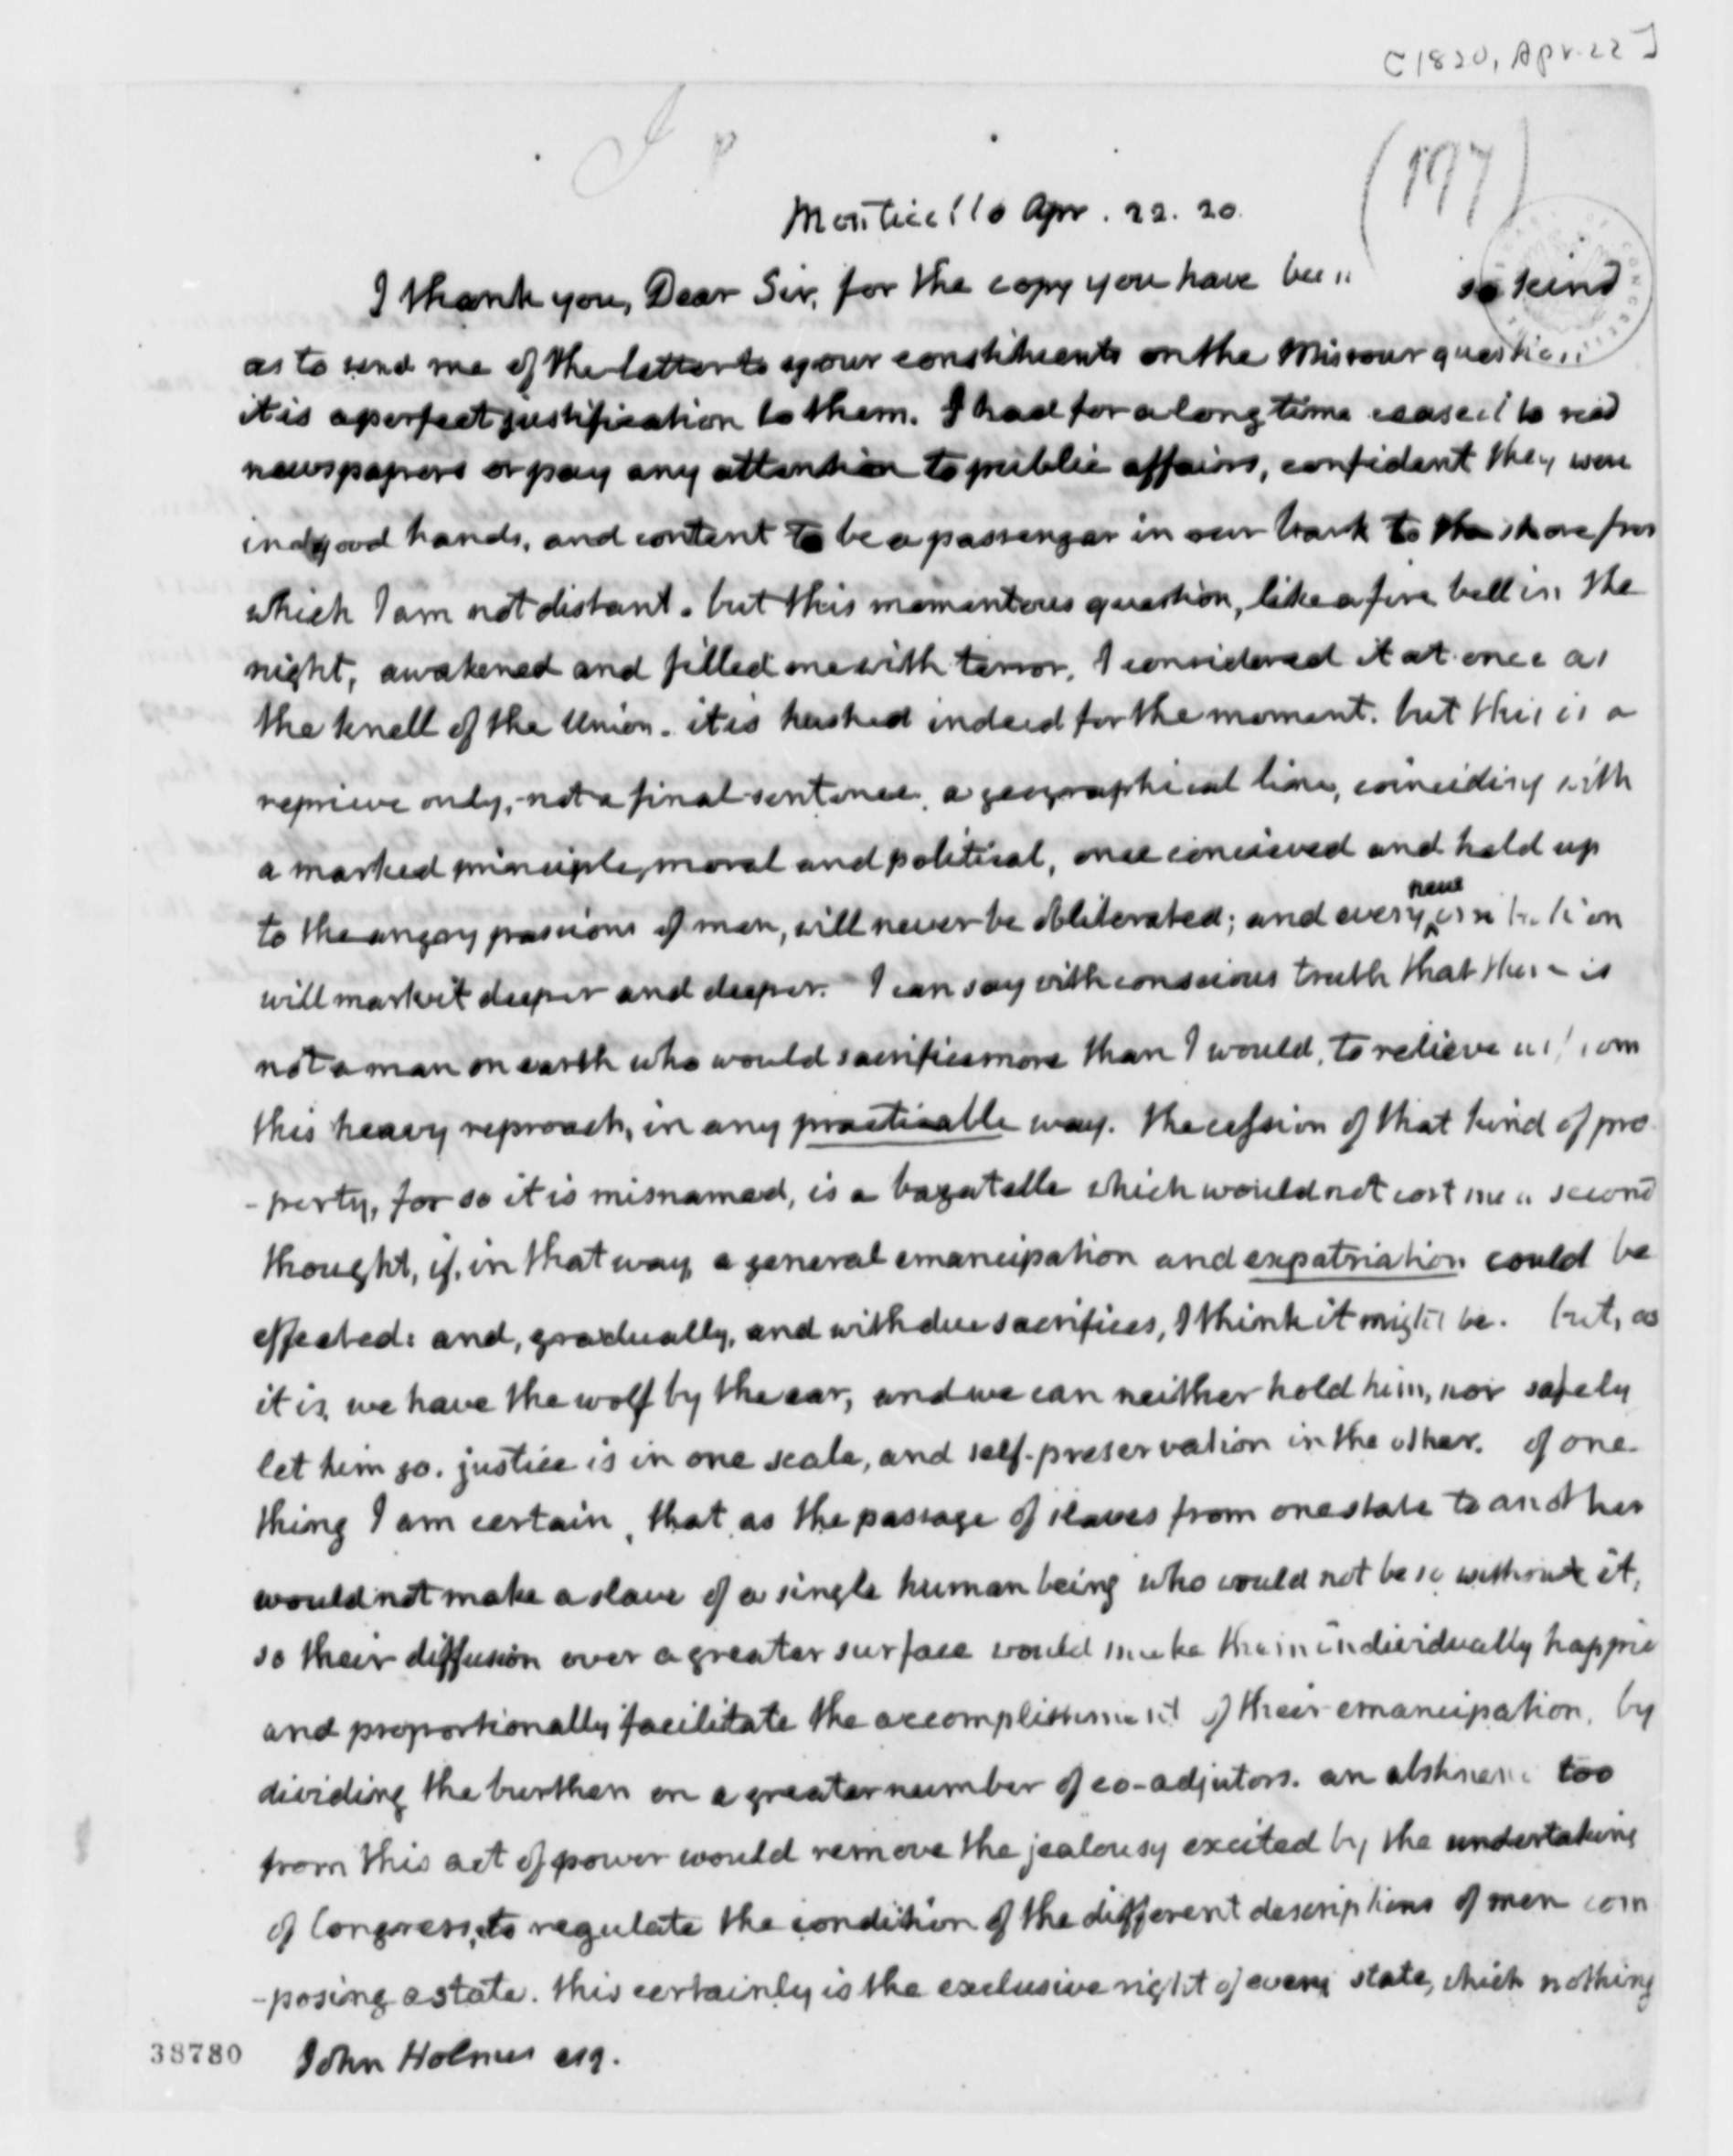 [1820, Apr. 22]
(177)
Monticello Apr. 22. 20.
I thank you, Dear Sir, for the copy you have been so kind
as to send me of the letter to your constituents on the Missouri question
it is a perfect justification to them. I had for a long time ceased to read
newspapers or pay any attention to public affairs, confident they were
in good hands, and content to be a passenger in our bark to the shore from
which I am not distant. but this momentous question, like a fire bell in the
night, awakened and filled me with terror. I considered it at once as
the knell of the Union. it is hushed indeed for the moment. but this is a
reprieve only, not a final sentence. a geographical line, coinciding with
a marked principle, moral and political, once concieved and held up
to the angry passions of men, will never be obliterated; and every new irritation
will mark it deeper and deeper. I can say with conscious truth that there is
not a man on earth who would sacrifice more than I would, to relieve us from
this heavy reproach, in any practicable way. the cession of that kind of pro
-perty, for so it is misnamed, is a bagatelle which would not cost me a second
thought, if, in that way, a general emancipation and expatriation could be
effected: and, gradually, and with due sacrifices, I think it might be. but, as
it is, we have the wolf by the ear, and we can neither hold him, nor safely
let him go. justice is in one scale, and self-preservation in the other. of one
thing I am certain, that as the passage of slaves from one state to another
would not make a slave of a single human being who would not be so without it,
so their diffusion over a greater surface would make them individually happier
and proportionally facilitate the accomplishment of their emancipation, by
dividing the burthen on a greater number of co-adjutors. an abstinence too
from this act of power would remove the jealousy excited by the undertaking
of Congress, to regulate the condition of the different descriptions of men com
-posing a state. this certainly is the exclusive right of every state, which nothing
38780 John Holmes esq.